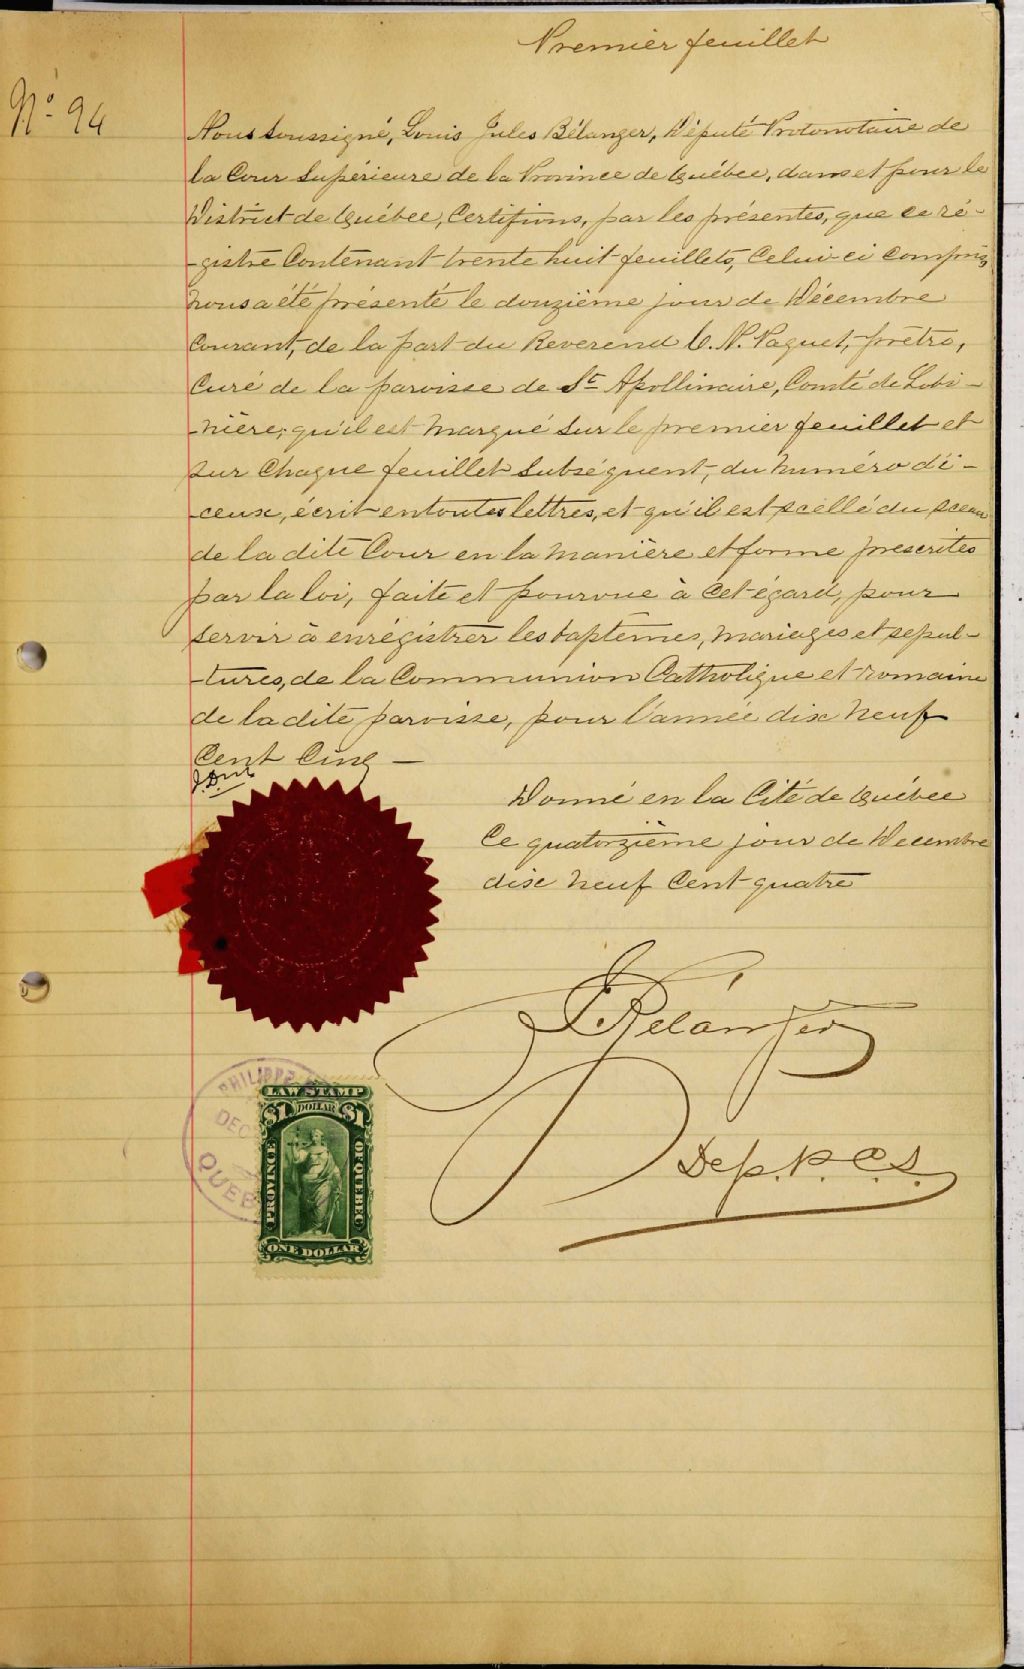 Premier feuillet
No. 94
Nous soussigné, Louis Jules Bélanger, Député Protonotaire de
la Cour Supérieure de la Province de Québec, dans et pour le
District de Québec, Certifions, par les présentes, que ce ré-
-gistre Contenant trente huit feuillets, Celui-ci compris,
nous a été présenté le douzième jour de Décembre
Courant, de la part du Reverend C. N. Paquet, prêtre,
Curé de la paroisse de St Apollinaire, Comté de Lotbi-
-nière; qu'il est Marqué sur le premier feuillet et
sur Chaque feuillet Subséquent, du Numéro d'i-
-ceux, écrit en toutes lettres, et qu'il est scellé du sceau
de la dite Cour en la Manière et forme prescrites
par la loi, faite et pourvue à Cet égard, pour
servir à enrégistrer les baptêmes, Mariages et sepul-
-tures, de la Communion Catholique et romaine
de la dite paroisse, pour l'année dix Neuf
Cent Cinq —
Donné en la Cité de Québec
Ce quatorzième jour de Decembre
dix Neuf Cent quatre
L. J. Bélanger
Dep. P. C. S.
PHILIPPE
DEC
QUEB
LAW STAMP
$1 DOLLAR $1
PROVINCE OF QUEBEC
ONE DOLLAR